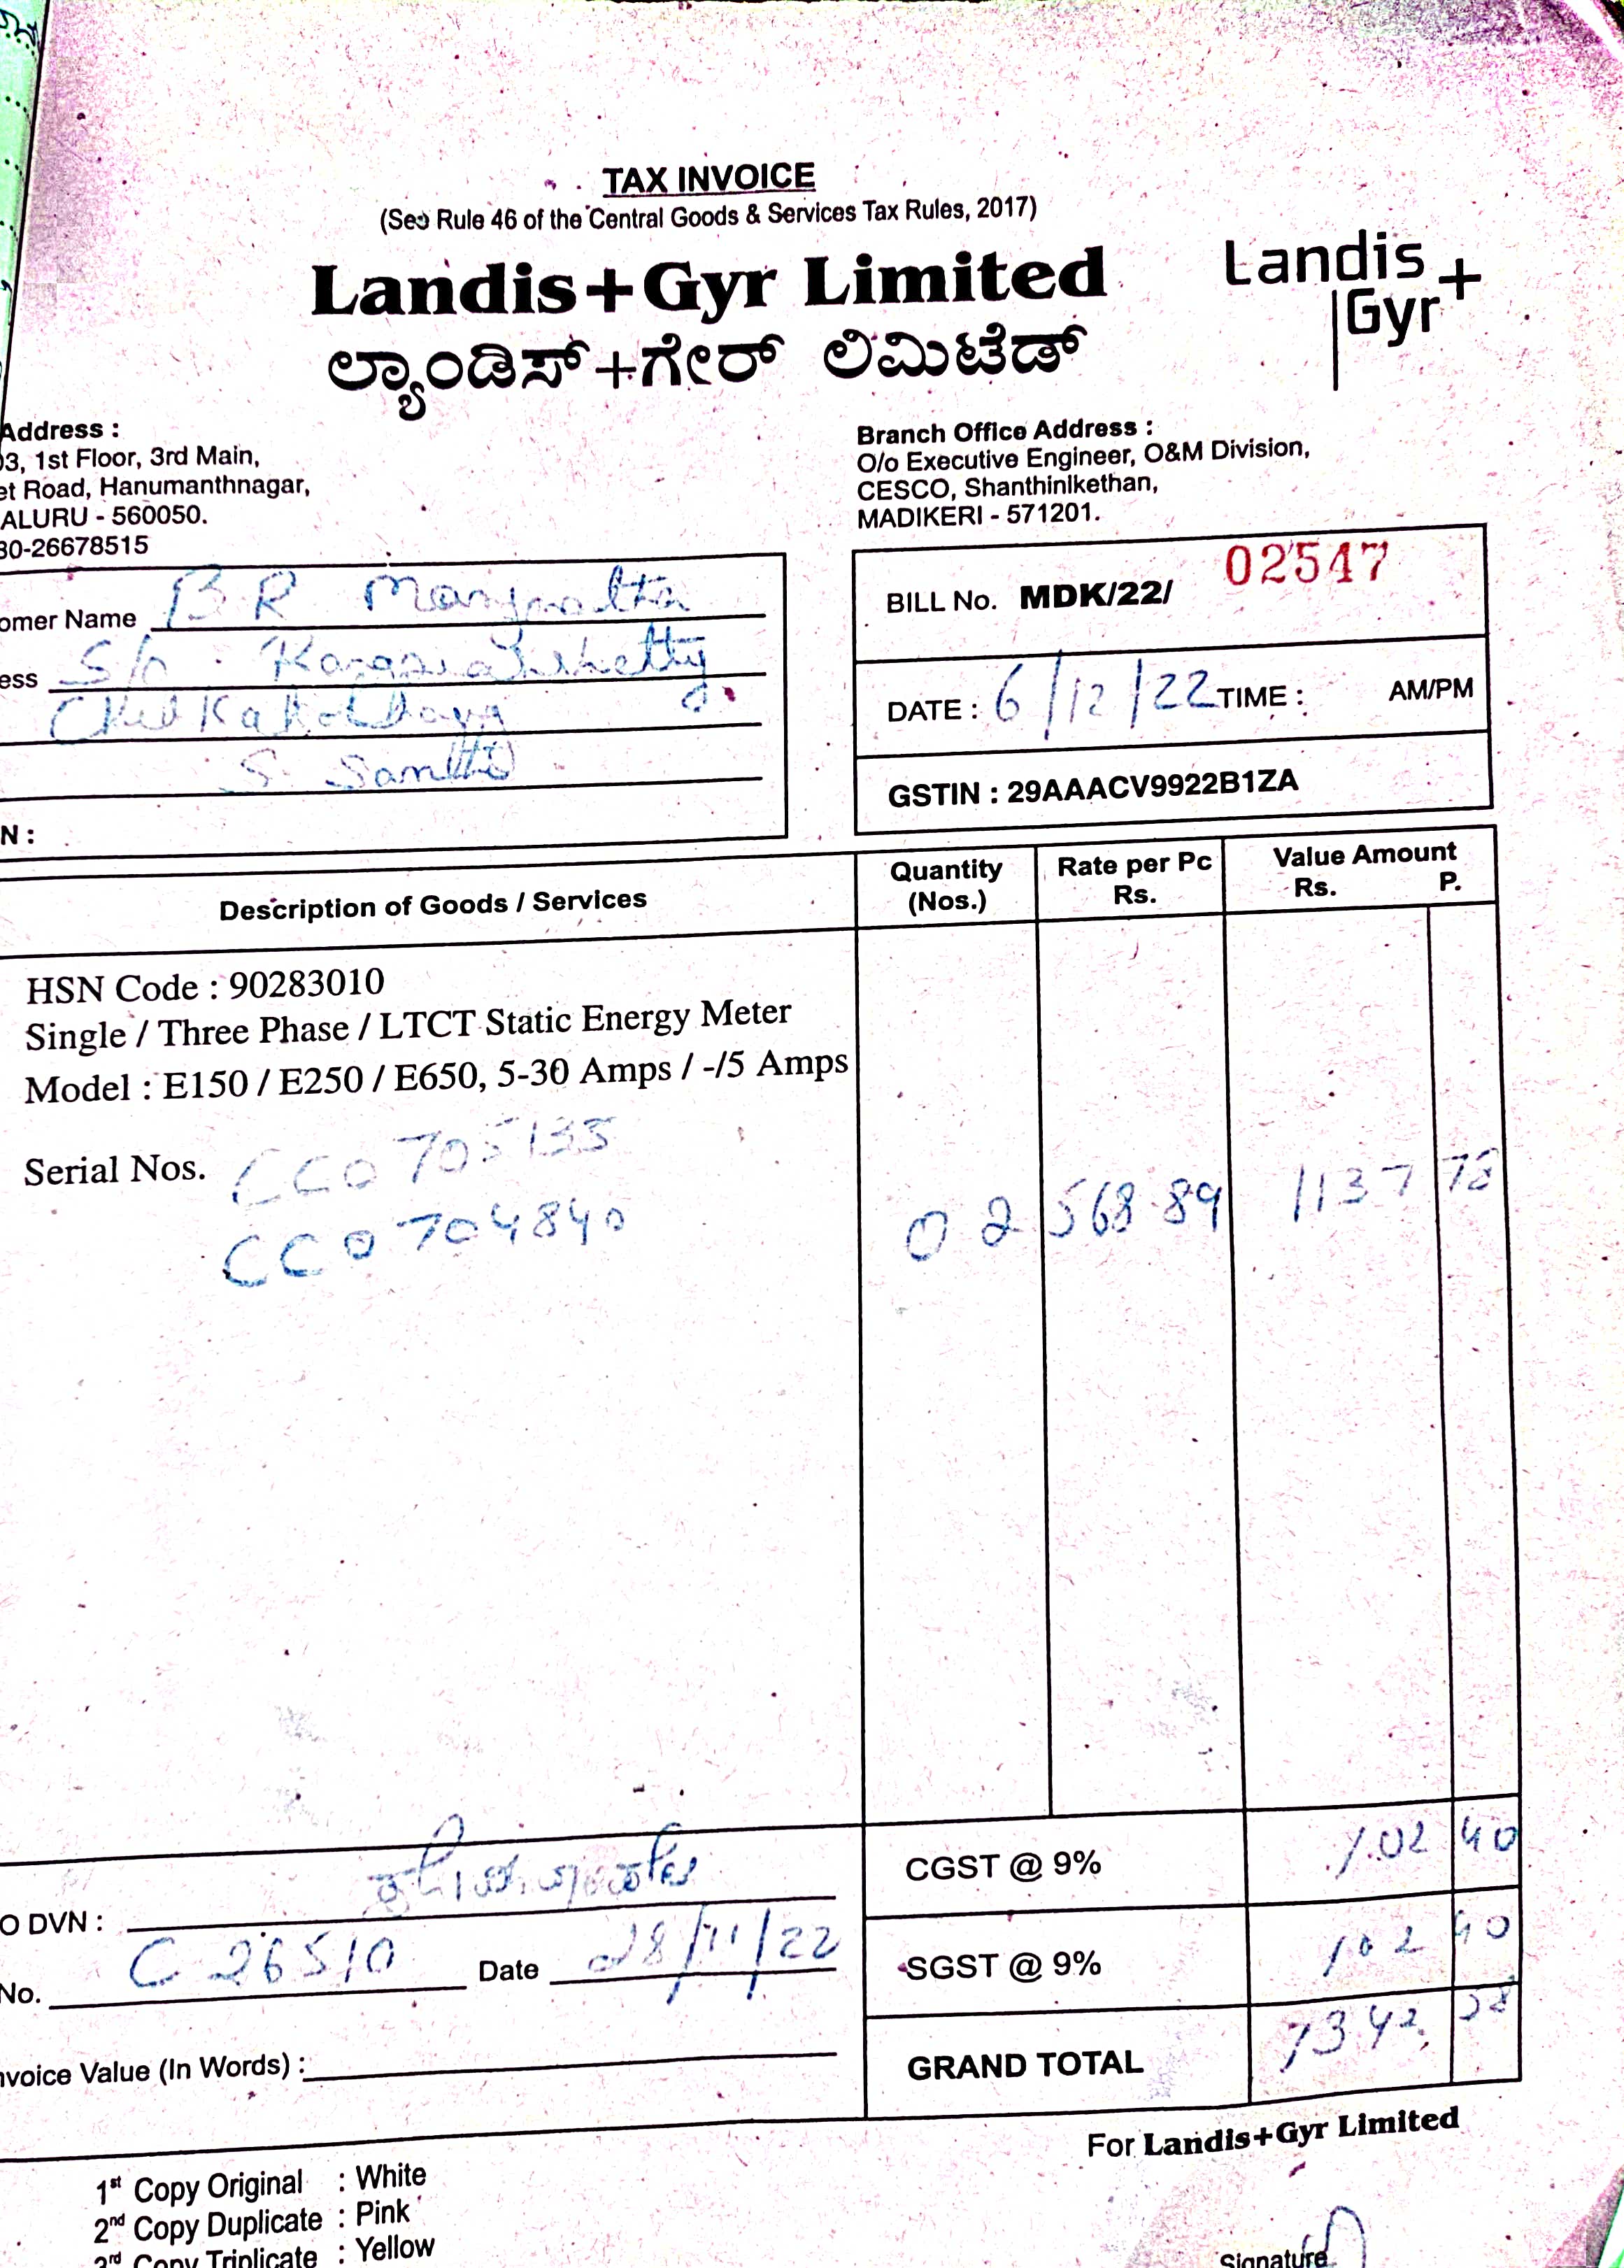 TAX INVOICE
(See Rule 46 of the Central Goods & Services Tax Rules, 2017)
Landis+Gyr Limited
Landis+
Gyr
ಲ್ಯಾಂಡಿಸ್+ಗೇರ್ ಲಿಮಿಟೆಡ್
Address :
03, 1st Floor, 3rd Main,
et Road, Hanumanthnagar,
ALURU - 560050.
80-26678515
Branch Office Address :
O/o Executive Engineer, O&M Division,
CESCO, Shanthinikethan,
MADIKERI - 571201.
omer Name B R
ess S/o
S.
N :
BILL No. MDK/22/ 02547
DATE : 6/12/22 TIME : AM/PM
GSTIN : 29AAACV9922B1ZA
Description of Goods / Services Quantity (Nos.) Rate per Pc Rs. Value Amount Rs. P.
HSN Code : 90283010
Single / Three Phase / LTCT Static Energy Meter
Model : E150 / E250 / E650, 5-30 Amps / -/5 Amps
Serial Nos. CC0705135
CC0704840 02 568.89 1137 78
CGST @ 9% 102 40
SGST @ 9% 102 40
GRAND TOTAL
O DVN :
No. C 26510 Date 28/11/22
nvoice Value (In Words) :
For Landis+Gyr Limited
1st Copy Original : White
2nd Copy Duplicate : Pink
3rd Copy Triplicate : Yellow
Signature